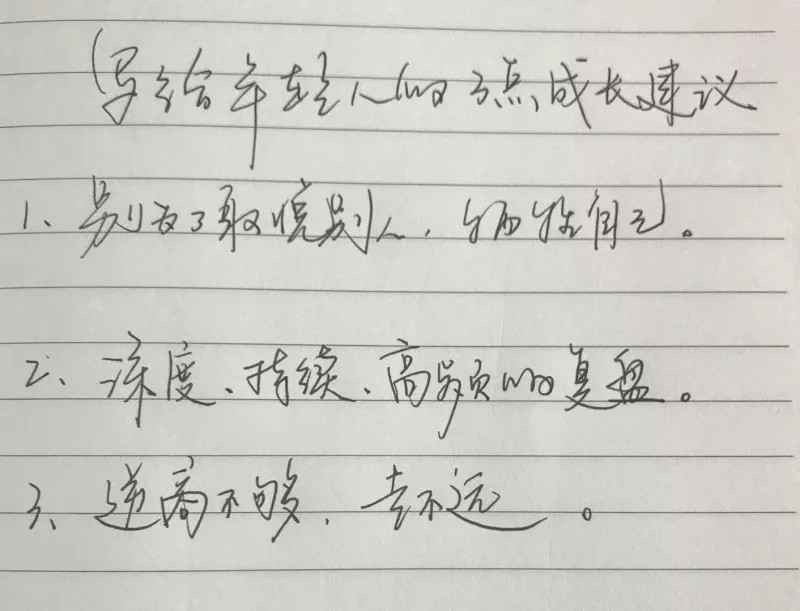 写给年轻人的3点成长建议
1、别为了取悦别人，牺牲自己。
2、深度、持续、高频的复盘。
3、逆商不够，走不远。